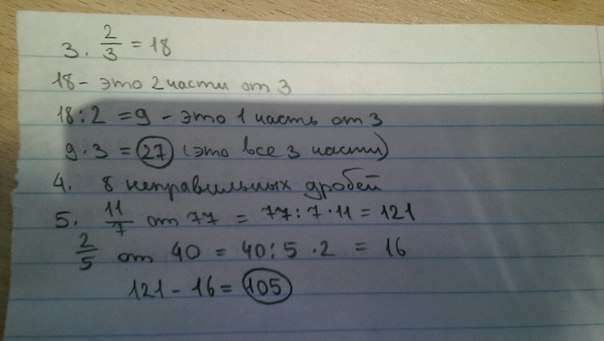 3. 2/3 = 18
18 - это 2 части от 3
18 : 2 = 9 - это 1 часть от 3
9 · 3 = 27 (это все 3 части)
4. 8 неправильных дробей
5. 11/7 от 77 = 77 : 7 · 11 = 121
2/5 от 40 = 40 : 5 · 2 = 16
121 - 16 = 105